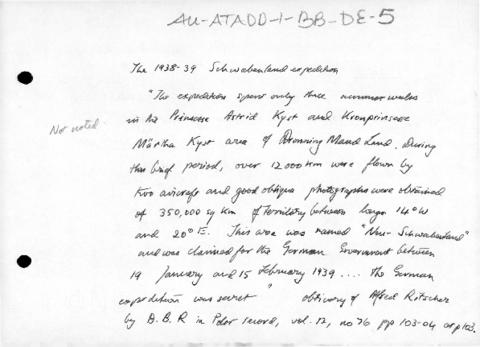 AU-ATADD-1-BB-DE-5
The 1938-39 Schwabenland expedition
"The expedition spent only three summer weeks
in the Prinsesse Astrid Kyst and Kronprinsesse
Not noted
Märtha Kyst area of Dronning Maud Land. During
this brief period, over 12 000 km were flown by
two aircraft and good oblique photographs were obtained
of 350,000 sq km of territory between longs 14°W
and 20°E. This area was named "Neu-Schwabenland"
and was claimed for the German Government between
19 January and 15 February 1939 .... The German
expedition was secret " obituary of Alfred Ritscher
by B.B.R in Polar record, vol. 12, no 76 pp 103-04 at p103.